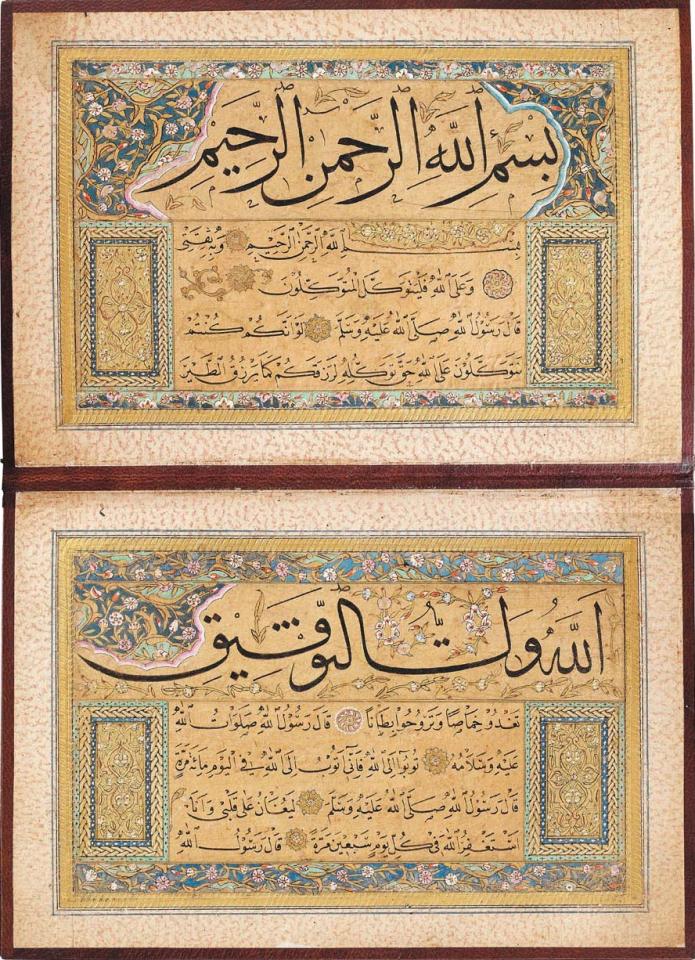 بِسْمِ اللَّهِ الرَّحْمَنِ الرَّحِيمِ
بِسْمِ اللَّهِ الرَّحْمَنِ الرَّحِيمِ وَبِهِ ثِقَتِي
وَعَلَى اللَّهِ فَلْيَتَوَكَّلِ الْمُتَوَكِّلُونَ
قَالَ رَسُولُ اللَّهِ صَلَّى اللَّهُ عَلَيْهِ وَسَلَّمَ لَوْ أَنَّكُمْ كُنْتُمْ
تَتَوَكَّلُونَ عَلَى اللَّهِ حَقَّ تَوَكُّلِهِ لَرَزَقَكُمْ كَمَا يَرْزُقُ الطَّيْرَ
اللَّهُ وَلِيُّ التَّوْفِيقِ
تَغْدُو خِمَاصًا وَتَرُوحُ بِطَانًا قَالَ رَسُولُ اللَّهِ صَلَوَاتُ اللَّهِ
عَلَيْهِ وَسَلَامُهُ تُوبُوا إِلَى اللَّهِ فَإِنِّي أَتُوبُ إِلَى اللَّهِ فِي الْيَوْمِ مِائَةَ مَرَّةٍ
قَالَ رَسُولُ اللَّهِ صَلَّى اللَّهُ عَلَيْهِ وَسَلَّمَ لَيُغَانُ عَلَى قَلْبِي وَأَنَا
أَسْتَغْفِرُ اللَّهَ فِي كُلِّ يَوْمٍ سَبْعِينَ مَرَّةً قَالَ رَسُولُ اللَّهِ